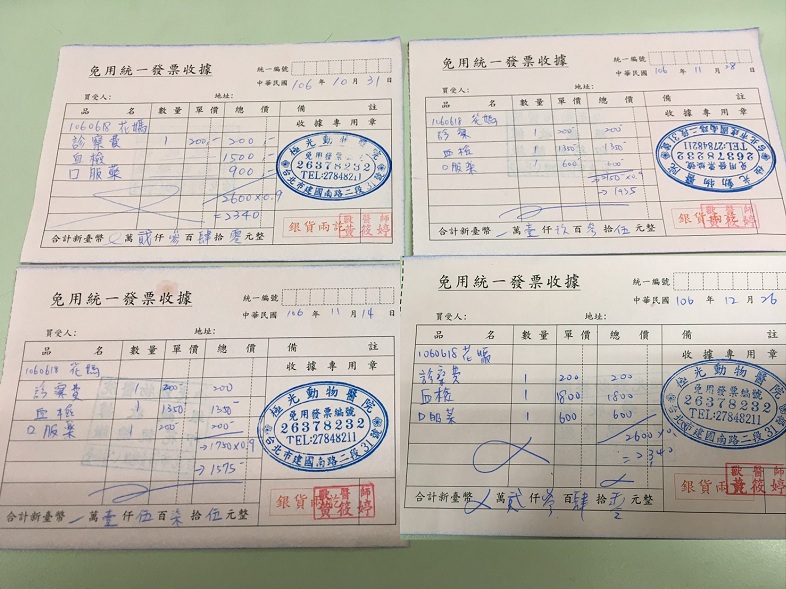 免用統一發票收據
統一編號
中華民國 106 年 10 月 31 日
買受人： 地址：
品 名 數量 單價 總 價 備 註
1060618 花媽 收據專用章
診察費 1 200.- 200.-
血檢 1500.-
口服藥 900.-
2600x0.9
=2340
極光動物醫院
免用發票
26378232
TEL:27848211
台北市建國南路二段31號
銀貨兩訖
獸醫師
黃筱婷
合計新臺幣 萬貳仟參百肆拾零元整
免用統一發票收據
統一編號
中華民國 106 年 11 月 28 日
買受人： 地址：
品 名 數量 單價 總 價 備 註
1060618 花媽 收據專用章
診察 1 200 200
血檢 1 1350 1350
口服藥 1 600 600
→2150x0.9
→1935
極光動物醫院
免用發票編號
26378232
TEL:27848211
台北市建國南路二段31號
銀貨兩訖
獸醫師
黃筱婷
合計新臺幣 萬壹仟玖百參拾伍元整
免用統一發票收據
統一編號
中華民國 106 年 11 月 14 日
買受人： 地址：
品 名 數量 單價 總 價 備 註
1060618 花媽 收據專用章
診察費 1 200 200
血檢 1 1350 1350
口服藥 1 200 200
→1750x0.9
→1575
極光動物醫院
免用發票編號
26378232
TEL:27848211
台北市建國南路二段31號
銀貨兩訖
獸醫師
黃筱婷
合計新臺幣 萬壹仟伍百柒拾伍元整
免用統一發票收據
統一編號
中華民國 106 年 12 月 26 日
買受人： 地址：
品 名 數量 單價 總 價 備 註
1060618 花媽 收據專用章
診察費 1 200 200
血檢 1 1800 1800
口服藥 1 600 600
2600x0.9
=2340
極光動物醫院
免用發票編號
26378232
TEL:27848211
台北市建國南路二段31號
銀貨兩訖
獸醫師
黃筱婷
合計新臺幣 萬貳仟參百肆拾零元整